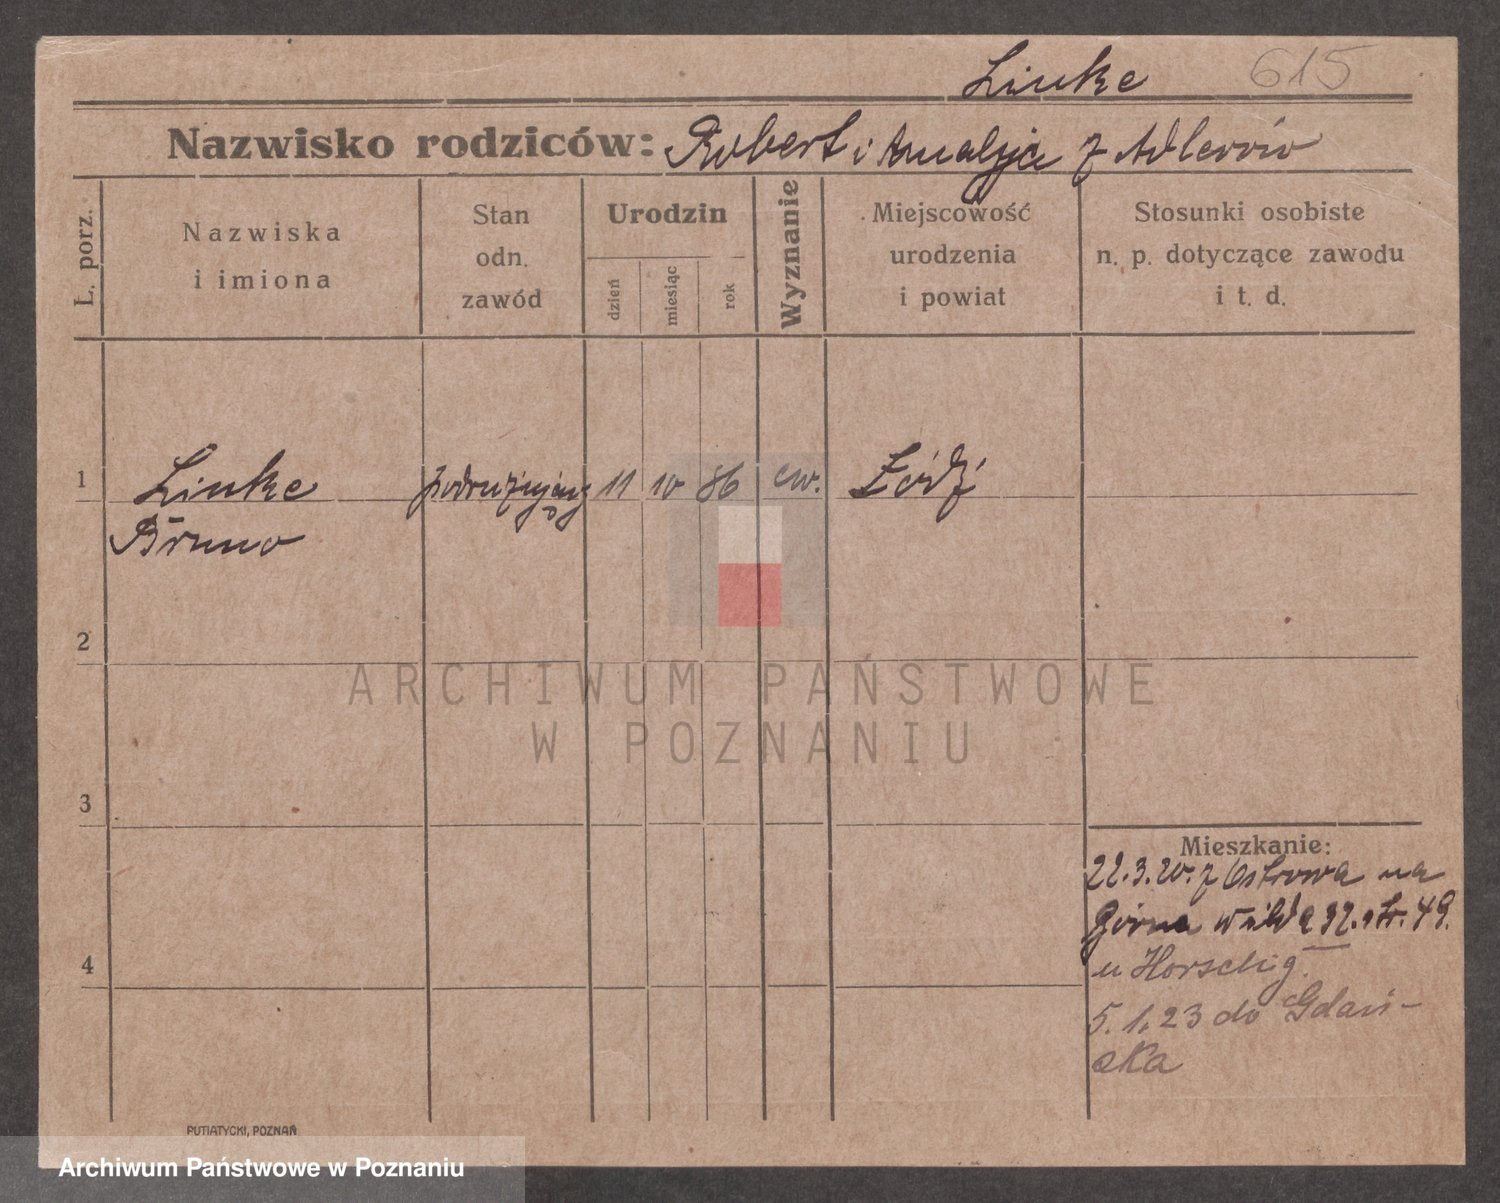 Linke 615
Nazwisko rodziców: Robert i Amalja z Adlerów
L. porz.
Nazwiska
i imiona
Stan
odn.
zawód
Urodzin
dzień
miesiąc
rok
Wyznanie
Miejscowość
urodzenia
i powiat
Stosunki osobiste
n. p. dotyczące zawodu
i t. d.
1 Linke podróżujący 11 10 86 ew. Łódź
Bruno
2
3
4
Mieszkanie:
22.3.20. z Ostrowa na
Górna Wilda 92. str. 49.
u Horschig.
5.1.23 do Gdań-
ska
PUTIATYCKI, POZNAŃ
ARCHIWUM PAŃSTWOWE
W POZNANIU
Archiwum Państwowe w Poznaniu